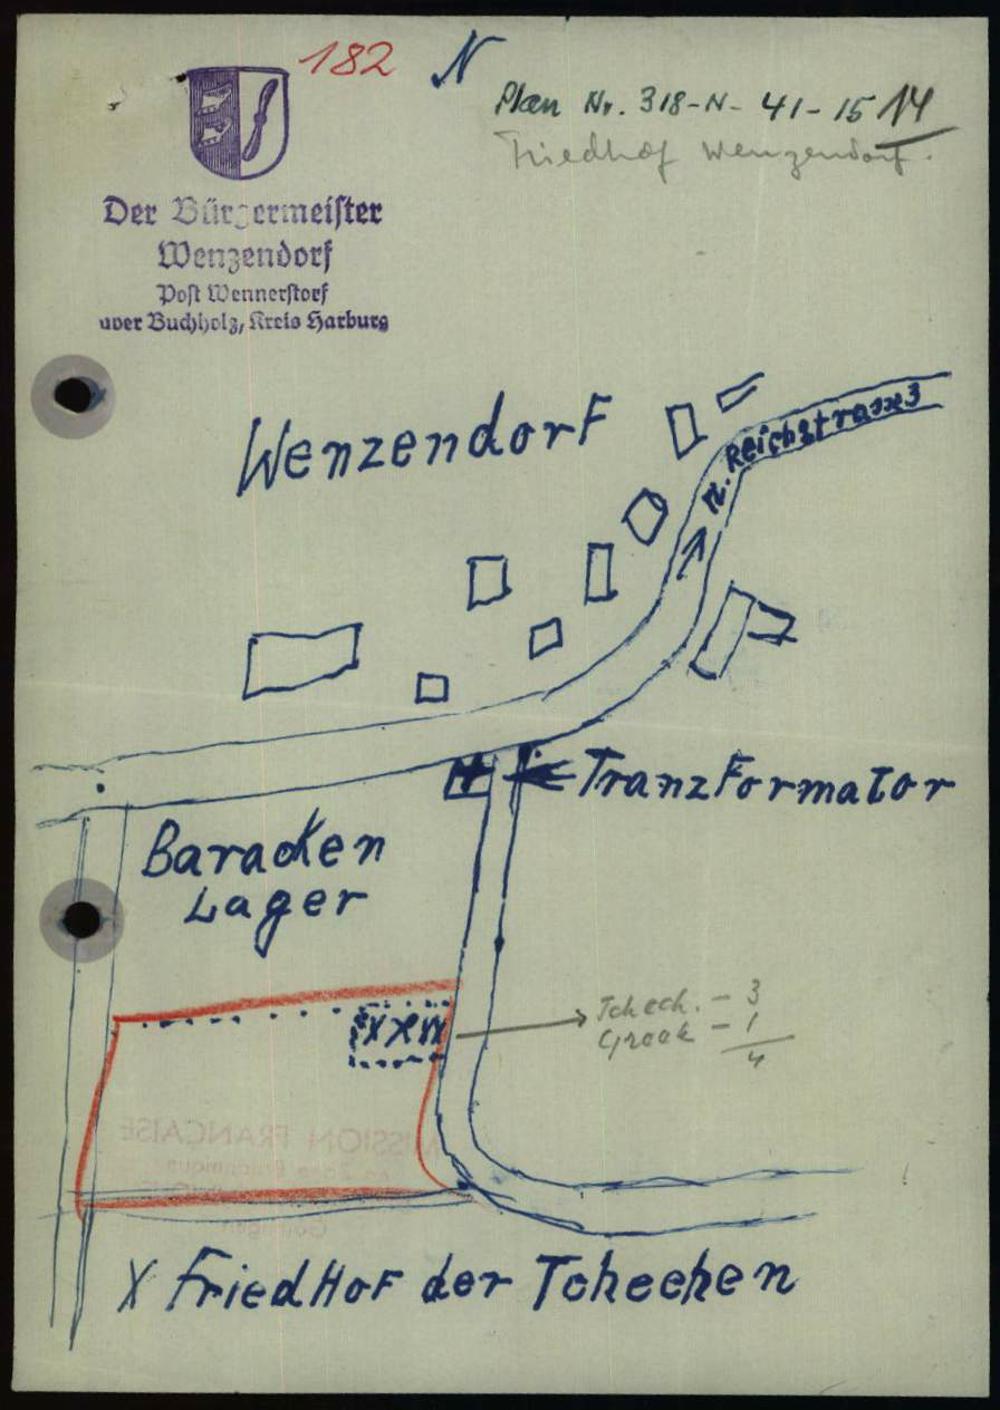 182
N
Plan Nr. 318-N- 41-15 14
Friedhof Wenzendorf.
Der Bürgermeiſter
Wenzendorf
Poſt Wennerſtorf
über Buchholz, Kreis Harburg
Wenzendorf
n. Reichstrasse 3
Tranzformator
Baracken
Lager
X X X X
Tchech. - 3
Greek - 1
4
MISSION FRANÇAISE
X FriedHof der Tchechen